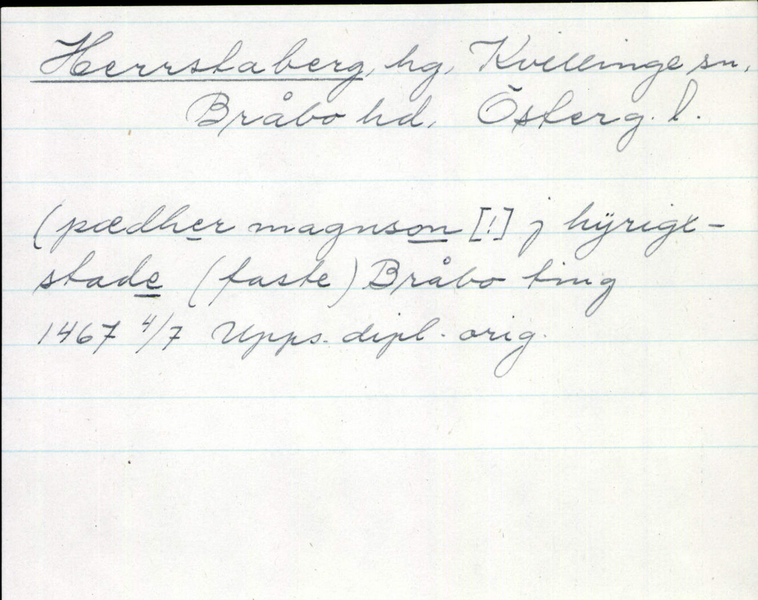 Herrstaberg, hg, Kvillinge sn,
Bråbo hd, Österg. l.
(pædher magnson [!] j hÿrige-
stade (faste) Bråbo ting
1467 4/7 Upps. dipl. orig.